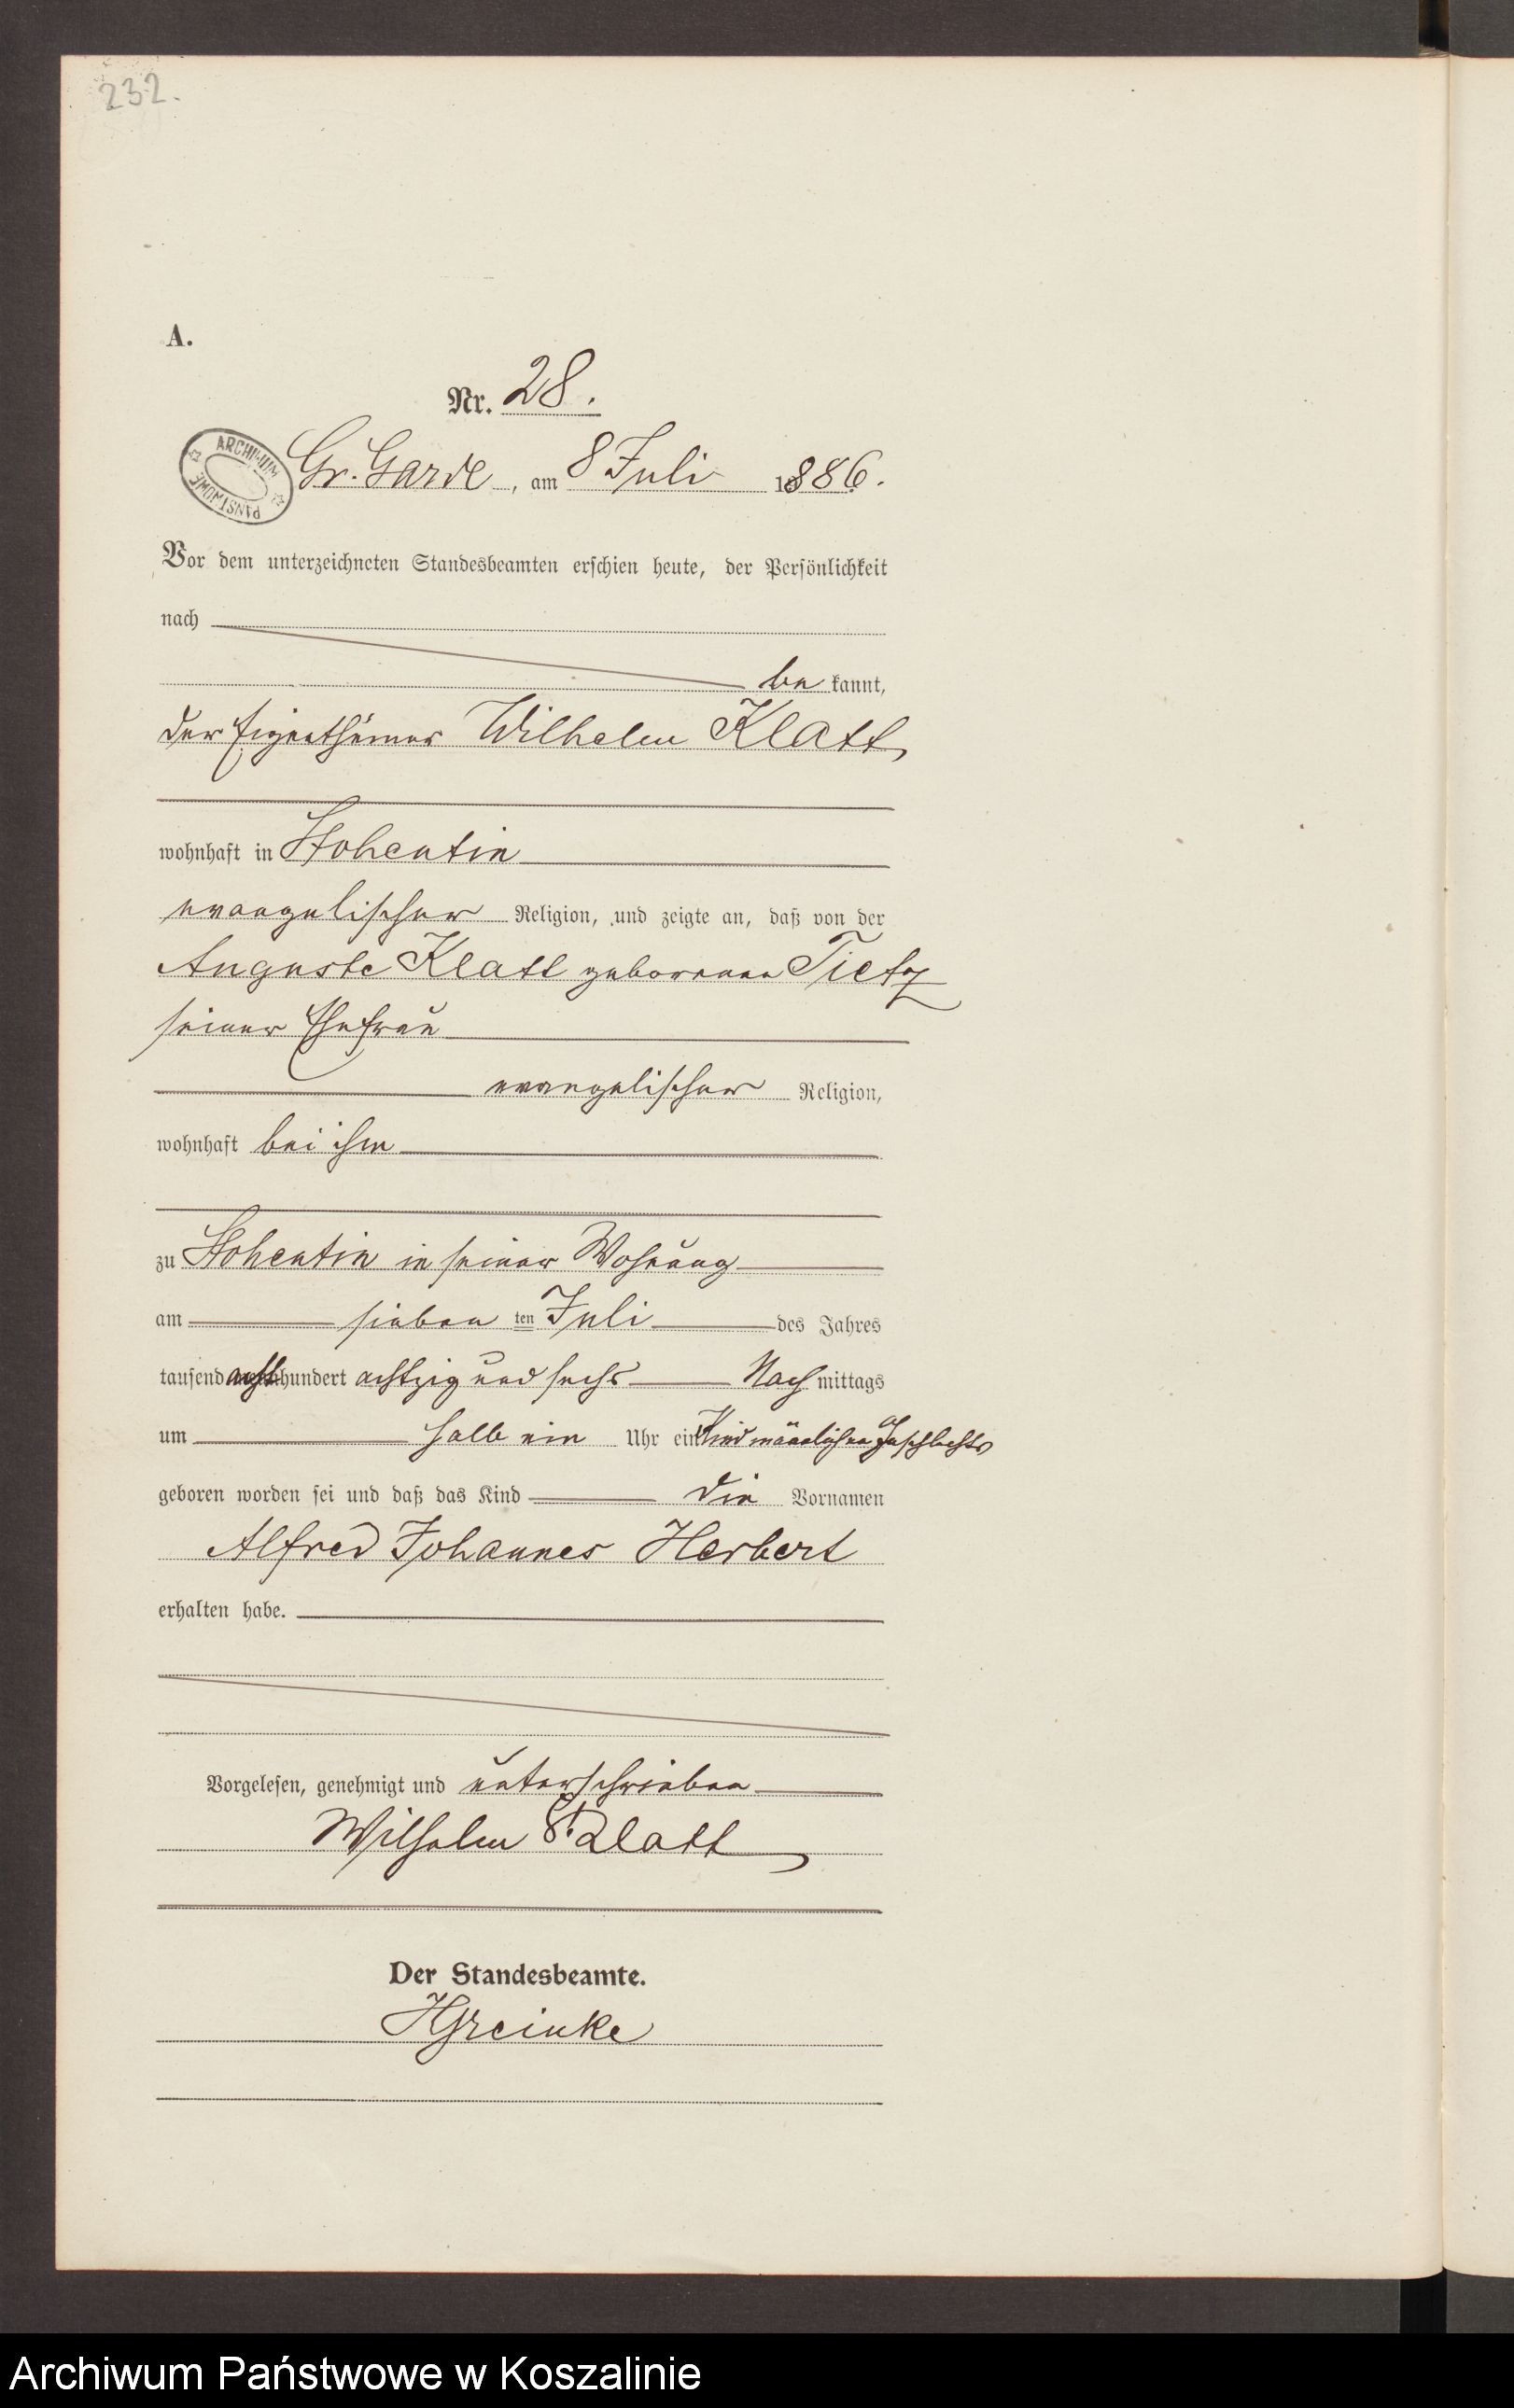 232.
A.
Nr. 28.
ARCHIWUM PAŃSTWOWE
Gr. Garde, am 8 Juli 1886.
Vor dem unterzeichneten Standesbeamten erschien heute, der Persönlichkeit
nach
be kannt,
der Eigenthümer Wilhelm Klatt,
wohnhaft in Stohentin
evangelischer Religion, und zeigte an, daß von der
Auguste Klatt geborenen Tietz
seiner Ehefrau
evangelischer Religion,
wohnhaft bei ihm
zu Stohentin in seiner Wohnung
am sieben ten Juli des Jahres
tausend acht hundert achtzig und sechs Nach mittags
um halb ein Uhr ein Kind männlichen Geschlechts
geboren worden sei und daß das Kind die Vornamen
Alfred Johannes Herbert
erhalten habe.
Vorgelesen, genehmigt und unterschrieben
Wilhelm Klatt
Der Standesbeamte.
Archiwum Państwowe w Koszalinie